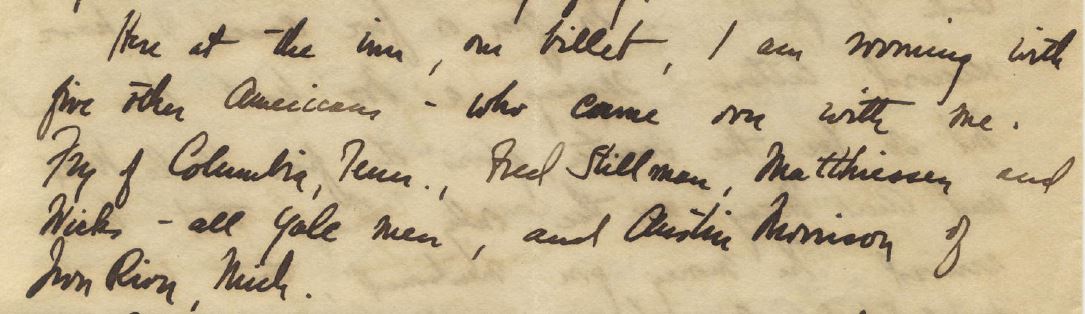 Here at the inn, our billet, I am rooming with
five other Americans - who came over with me.
Fry of Columbia, Tenn., Fred Stillman, Matthiessen and
Wicks - all Yale men, and Austin Morrison of
Iron River, Mich.